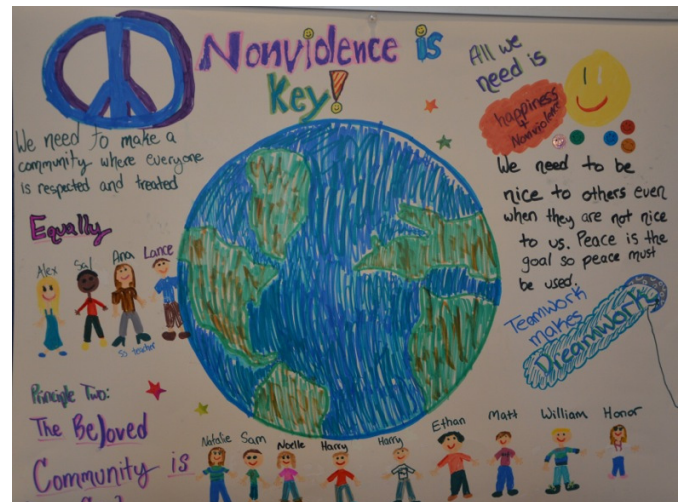 Nonviolence is
Key!
All we
need is
happiness
+
Nonviolence
We need to make a
community where everyone
is respected and treated
Equally
We need to be
nice to others even
when they are not nice
to us. Peace is the
goal so peace must
be used.
Teamwork
makes
Dreamwork
Alex Sal Ana Lance
SD teacher
Principle Two:
The Beloved
Community is
Natalie Sam Noelle Harry Harry Ethan Matt William Honor